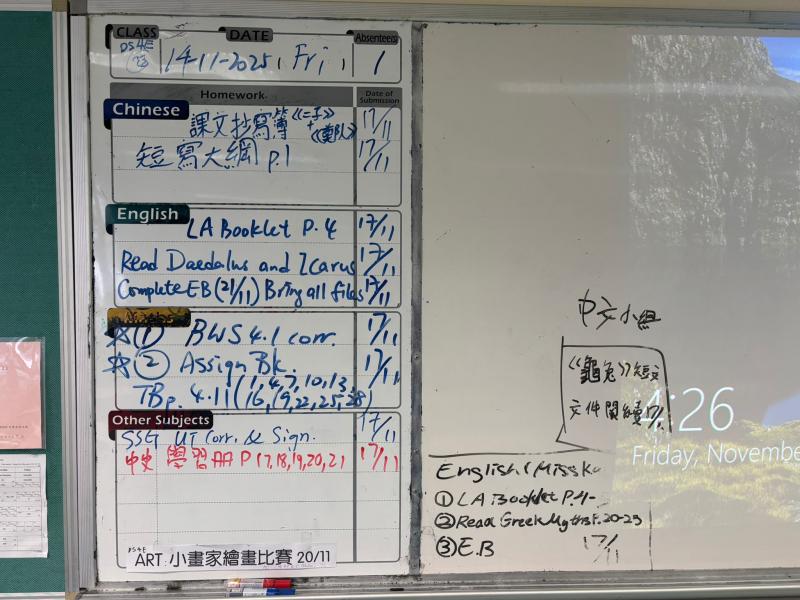 CLASS DATE Absentees
DS4E 14-11-2025, Fri, 1
Homework Date of Submission
Chinese
課文抄寫簿《二子》+《鄭人》 17/11
短寫大綱 P.1 17/11
English
LA Booklet P.4 17/11
Read Daedalus and Icarus 17/11
Complete EB (21/11) Bring all files 17/11
☆① BWS 4.1 corr. 17/11
☆② Assign Bk. 17/11
TBp. 4.11 (1,4,7,10,13,
16,19,22,25,28)
Other Subjects
SSG UT Corr. & Sign. 17/11
中史 學習冊 P 17,18,19,20,21 17/11
DS4E
ART: 小畫家繪畫比賽 20/11
中文小組
《龜兔》短文
文件
4:26
Friday, Novembe
English (Miss
① LA Booklet P.4
② Read Greek Myths P.20-23
③ E.B 17/11